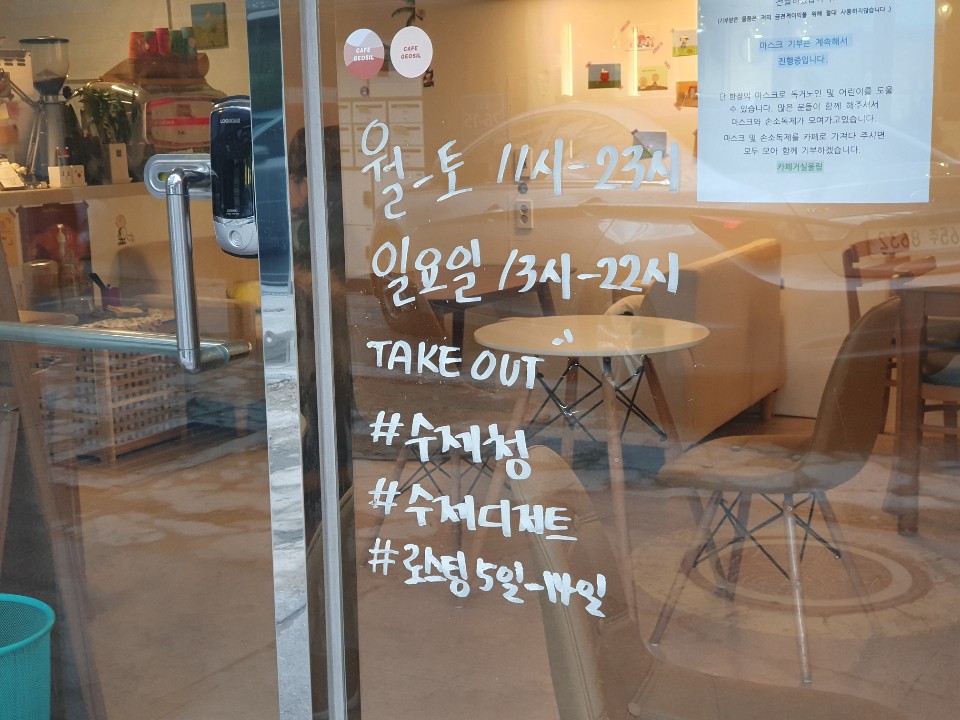 (기부받은 물품은 저의 금전케이익을 위해 절대 사용하지않습니다.)
마스크 기부는 계속해서
진행중입니다.
단 한장의 마스크로 독거노인 및 어린이를 도울
수 있습니다. 많은 분들이 함께 해주셔서
마스크와 손소독제가 모여가고있습니다.
마스크 및 손소독제를 카페로 가져다 주시면
모두 모아 함께 기부하겠습니다.
카페거실올림
CAFE
GEOSIL
CAFE
GEOSIL
월-토 11시-23시
일요일 13시-22시
TAKE OUT
#수제청
#수제디저트
#로스팅 5일-14일